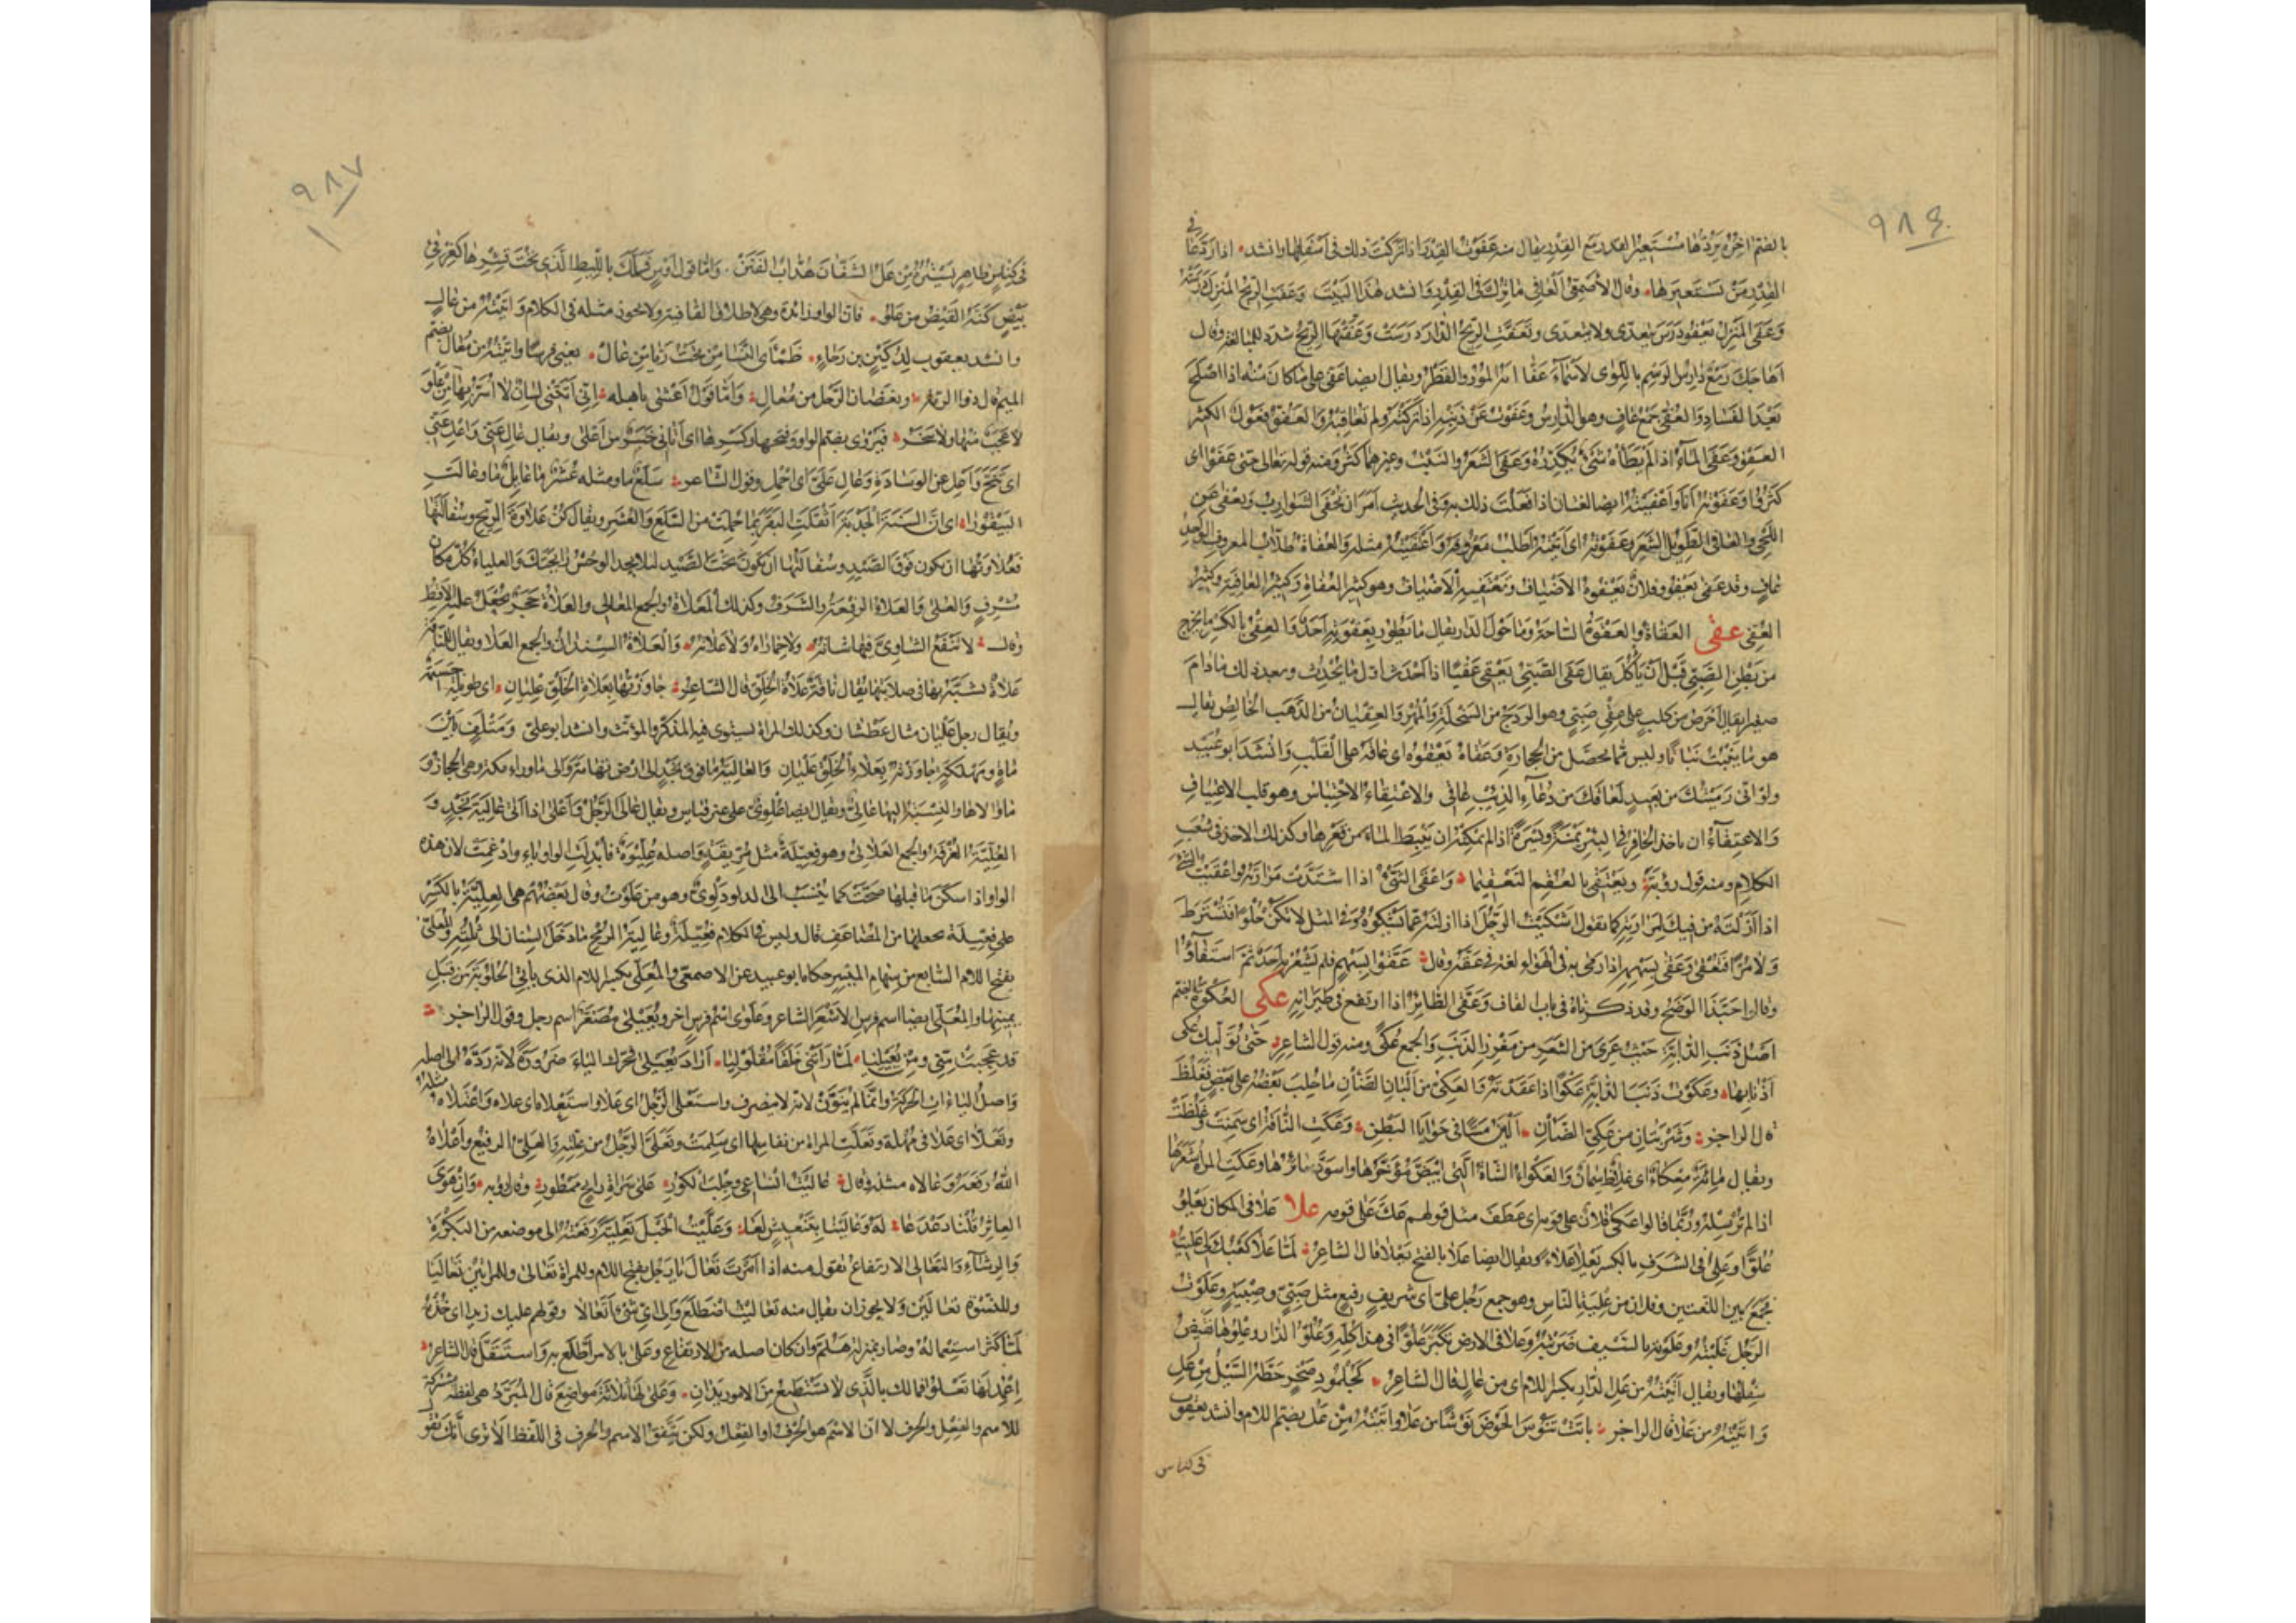 ٩٨٤
بالضم اخره يَرُدُّها مُسْتَعِيرُ القدر مع القِدْرِ يقال منه عَفَوْتُ القِدْرَ اذا تَرَكْتَ ذلك فى اَسْفَلِها وانشد اذا رَدَّ عَافى
القِدْرِ مَنْ يَسْتَعيرها وقال الأَصْمَعِىّ اَلعَافِى مَا تُرِكَ فى القِدْرِ وانشد هٰذا البَيْتَ وَعَفَتِ الرّيحُ المَنْزِلَ دَرَسَتْهُ
وَعَفَى المَنْزِلُ يَعْفُو دَرَسَ يتعدّى ولا يتعدى وتَعَفَّتِ الدّارُ دَرَسَتْ وَعَفَّتْهَا الرّيحُ شدد للمبالغة وقال
اَهَاجَكَ رَبْعٌ دَارِسُ الرَسْمِ باللِّوٰى لأَسْمَاءَ عَفَّا اٰيَهُ المُوْرُ والقَطْرُ ويقال ايضا عَفَى على مٰا كانَ مِنْه اذا اصْلَحَ
بَعْدَ الفَسٰادِ وَالعُفِىُّ جَمْعُ عَافٍ وهو الدّارِسُ وَعَفَوْتُ عَنْ ذَنْبِهِ اِذا تَرَكْتَهُ ولم تُعَاقِبْهُ وَالعَفُوُّ فَعُولٌ الكثير
العَفْوِ وَعَفَى المَاءُ اذا لَمْ يَطَأْهُ شَىْءٌ يُكَدِّرُهُ وَعَفَى الشَعْرُ والنَبْتُ وغيرهما كَثُرَ وَمنه قوله تعالى حتى عَفَوْا اى
كَثُرُوا وَعَفَوْتُهُ اَنَا وَاَعْفَيْتُهُ ايضا لغتان اذا فَعَلْتَ ذلك به وفى الحديث اَمَرَ اَنْ تُحْفَى الشَوَارِبُ وَتُعْفَى
اللِحٰى والعافى الطَوِيلُ الشَعَرِ وعَفَوْتُه اى اَتَيْتُه اَطْلُبُ مَعْرُوفَهُ وَاعْتَفَيْتُه مثله والعُفاةُ طلّابُ المعروف الواحد
عافٍ وقد عَفَى يَعْفُو وفلانٌ تَعْفُوهُ الاَضْيٰافُ وَتَعْتَفِيهِ الاَضْيٰافُ وهو كثيرُ العُفَاةِ وَكَثِيرُ العَافِيَةِ وكثير
العُفّى عقى العَقاةُ والعَقْوَةُ السّاحَةُ وَمٰا حَوْلَ الدّارِ يقال مٰا يَطُورُ بِعَقْوَتِهِ اَحَدٌ وَالعِقْىُ بالكسر ما يخرج
من بَطْنِ الصَبِىِّ قَبْلَ اَنْ يَأْكُلَ يقال عَقَى الصَبِىُّ يَعْقِى عَقْيًا اذا اَحْدَثَ اوّل مٰا يُحْدِثُ وبعد ذلك مٰادامَ
صغيرا يقال اَحْرَصُ من كلبٍ على عِقْىِ صَبِىٍ وهو الرَدَجُ من السَخْلَةِ وَالمُهْرِ وَالعِقْيَانُ من الذَهَبِ الخٰالِصُ يقال
هو مٰا يَنْبُتُ نَبٰاتًا وليس مّما يحصّل من الحِجارَةِ وَعَقاهُ يَعْقُوهُ اى عاقَه على القَلْبِ وَانشَدَ ابو عُبَيْد
ولو انّى رَمَيْتُكَ من بَعيدٍ لَعٰاقَكَ من دُعٰاءِ الذِئبِ عٰاقِى والاعْتِقاءُ الاحْتِباسُ وهو قلب الاعتِيٰاقِ
وَالاعْتِقَاءُ ان ياخذ الحٰافِرُ فى البئر يَمْنَةً ويَسْرَةً اذا لم يمكنه ان يَنْبِطَ المٰاءَ من قَعْرِها وكذلك الاخذ فى شُعَبِ
الكلامِ ومنه قول رؤبة ويَعْتَقِى بالعُقَمِ التَعْقِيمَا وَاعْقَى الشَىْءُ اذا اشْتَدَّتْ مَرَارَتُه وَاعْقَيْتُ الشىء
اذا اَزَلْتَهُ من فيكَ لِمَرَارَتِهِ كما تقول شَكَيْتُ الرَجُلَ اذا ازلتَه عَمّا يَشْكُوهُ وَفى المثل لا تكُنْ حُلْوًا فَتُسْتَرَطَ
وَلا مُرًّا فَتُعْقَى وَعَقَى بِسَهْمِهِ اذا رَمى به فى الهَوٰاءِ لغة فى عَقَّه وقال عَقَّوْا بِسَهْمٍ فلم يَشْعُرْ بِه اَحَدٌ ثمّ اسْتَفاؤُا
وقالوا حَبَّذَا الوَضَحُ وقد ذكرناه فى باب القاف وَعَقَّى الطّائِرُ اذا ارتفع فى طَيَرانِهِ عكى العُكْوَةُ بالضم
اَصْلُ ذَنَبِ الدّابّةِ حَيْثُ عَرِىَ من الشَعَرِ من مَغْرِزِ الذَنَبِ وَالجمع عُكًى ومنه قول الشاعر حَتّى تُوَلّيكَ عُكى
اَذْنٰابِهٰا وعَكَوْتُ ذَنَبَ الدّابّةِ عَكْوًا اذا عَقَدْتَهُ وَالعَكِىُّ من اَلبانِ الضَأْنِ مٰا حُلِبَ بَعْضُهُ على بَعْضٍ فَغَلُظَ
قال الراجز وَشَرْبَتَانِ من عَكِىِّ الضَأْنِ اَلْيَنُ مَسًّا فى حَوَايَا البَطْنِ وَعَكَتِ النّاقَةُ اى سَمِنَتْ وَغَلُظَتْ
ويقال مِائَةٌ مِعْكاءٌ اى غِلاظٌ سِمٰانٌ وَالعَكْوٰاءُ الشاةُ الّتى ابْيَضَّ مُؤخَّرُهٰا واسوَدَّ سٰائِرُهٰا وعَكَتِ المرأةُ شَعْرَها
اذا لم تُرْسِلْه ورُبَّما قالوا عَكَى فُلانٌ على قومه اى عَطَفَ مثل قولهم عَكَّ عَلى قومه علا عَلا فى المكان يَعْلُو
عُلُوًّا وعَلِىَ فى الشَرَفِ بالكسر يَعْلٰى عَلاءً ويقال ايضا عَلا بالفتح يَعْلٰى قال الشاعر لَمّا عَلا كَعْبُكَ لى عَلِيتُ
فجمع بين اللغتين وفلان من عِلْيَةِ النّاسِ وهو جمع رَجُلٍ عَلِىّ اى شريفٍ رفيع مثل صَبِىٍّ وصِبْيَةٍ وعَلَوْتُ
الرَجُلَ غَلَبْتُهُ وعَلَوْتُه بالسَيْفِ ضَرَبْتُهُ وعَلا فى الارضِ تَكَبَّرَ عُلُوًّا فى هذا كلّه وعُلْوُ الدّار وعِلْوُهٰا نَقِيضُ
سِفْلِهٰا ويقال اَتَيْتُه من عَلِ الدّار بكسر اللام اى من عٰالٍ قال الشاعر كَجُلْمُودِ صَخْرٍ حَطَّهُ السَّيْلُ مِنْ عَلِ
وَاَتَيْتُه من عَلا قال الراجز بٰاتَتْ تَنُوشُ الحَوْضَ نَوْشًا من عَلا وَاَتَيْتُهُ مِنْ عَلُ بضم اللام وانشد يعقوب
فى كناس
٩٨٧
فى كِنٰاسٍ ظٰاهِرٍ يَسْتُرُهُ مِنْ عَلُ الشَفَّانَ هُدَّابُ الفَنَنْ وَامّا قول اَوْسٍ فَمَلَّكَ باللِّيطِ الّذى تَحْتَ قِشْرِهٰا كَغِرْقِئِ
بَيْضٍ كَنَّهُ القَيْضُ من عَلُو فانّ الواو زائدة وهى لاطلاق القافية ولا يجوز مثله فى الكلام وَاَتَيْتُه من عٰالٍ
وانشد يعقوب لِدُكَيْنِ بن رَجٰاءٍ ظَمْأَى النَّسٰا مِنْ تَحْتُ رَيّا مِنْ عٰالْ يعنى فرسًا وَاَتَيْتُه من مُعٰالٍ بضم
الميم قال ذو الرمّة ونَغَضان الرَحْلِ من مُعالِ وَامّا قَوْلُ اَعْشٰى باهِلَه اِنّى اَتَتْنِى لِسانٌ لا اُسَرُّ بِهٰا مِنْ عَلْوَ
لا عَجَبٌ مِنْهٰا ولا سَخَرُ فيُرْوٰى بضم الواو وفتحها وكَسْرِهٰا اى اَتٰانِى خَبَرٌ من اَعْلٰى ويقال عٰالِ عَنِّى وَاعْلِ عَنِّى
اى تَنَحَّ وَاعْلُ عن الوِسٰادَةِ وَعٰالِ عَلَىَّ اى احْمِلْ وقول الشّاعر سَلَعٌ مٰا ومثله عُشَرٌ مٰا عٰائِلٌ مٰا وعٰالَتِ
البَيْقُورا اى انّ السَنَةَ الجَدْبَةَ اَثْقَلَتِ البَقَرَ بِما حُمِّلَتْ من السَّلَعِ وَالعُشَرِ ويقال كُنْ عُلاوَةَ الرِيحِ وسُفَالَتَهٰا
فَعُلاوَتُها ان تكون فَوْقَ الصَيْدِ وسُفَالَتُها ان تكونَ تَحْتَ الصَّيْدِ لئلا يجد الوحْشُ رٰائِحَتَكَ والعلياء كُلّ مكان
مُشْرِفٍ والعُلٰى وَالعَلاءُ الرِفْعَةُ وَالشَرَفُ وكذلك المَعْلاةُ والجمع المَعٰالِى والعَلاةُ حَجَرٌ يُجْعَلُ عليه الاَقِطُ
وقال لا تَنْفَعُ الشاوِىَّ فيها شاتُه ولا حِمٰارٰاهُ وَلا عَلاتُه وَالعَلاةُ السِّنْدٰانُ والجمع العَلا ويقال للناقة
عَلاةٌ تشبّه بها فى صلابتها يُقال نٰاقَةٌ عَلاةُ الخَلْقِ قال الشّاعر جٰاوَزْتُهٰا بِعَلاةِ الخَلْقِ عِلْيٰانِ اى طويلة جسيمة
ويُقال رجل عَلْيٰان مثال عَطْشان وكذلك المراة يستوى فيه المذكّر والمؤنّث وانشد ابو علىّ وَمَتْلَفٍ بَيْنَ
مَوْماةٍ ومَهْلَكَةٍ جٰاوَزْتُه بِعَلاةِ الخَلْقِ عِلْيٰانِ وَالعالِيَةُ مٰا فوق نَجْدٍ الى ارض تهامَةَ وَالى مٰا وراء مكّة وهى الحجاز وَ
مٰا والاها والنِّسْبَةُ اليها عٰالِىٌّ ويقال ايضا عُلْوِىٌّ على غير قياس ويقال عٰالَى الرَجُلُ وَاَعْلٰى اذا اَتٰى عٰالِيَةَ نَجْدٍ وَ
العُلِّيَّةُ الغُرْفَةُ والجمع العَلالِىُّ وهو فُعِّيلَةٌ مثل مُرِّيقَةٍ وَاصله عُلِّيْوَةٌ فاُبْدِلَتِ الواو ياء وَادْغِمَتْ لان هذه
الواو اذا سكن مٰا قبلها صحّتْ كما يُنْسَبُ الى الدلو دَلْوِىٌّ وهو من عَلَوْتُ وقال بَعْضُهُم هى العِلِّيَّةُ بالكَسْرِ
على فِعِّيلَةٍ يجعلها من المضاعف قال وليس فى الكلام فُعِّيلَة وعٰالِيَةُ الرُّمْحِ مٰا دَخَلَ السِّنان الى ثُلُثِه والمُعَلّٰى
بفتح اللام السّابع من سِهامِ المَيْسِرِ حكاه ابو عبيد عن الاصمعى والمُعَلِّى بكسر اللام الذى يأتِى الحَلُوبَةَ مِنْ قِبَلِ
يمينها والمُعَلّٰى ايضا اسم فرسِ الاَسْعَرِ الشاعر وعَلْوٰى اسْمُ فرسٍ اخر ويُعَيْلٰى مُصَغَّرٌ اسم رجل وقول الراجز
قد عَجِبَتْ مِنّى ومِنْ يُعَيْلِيا لَمّا رَأَتْنِى خَلَقًا مُقْلَوْلِيا اَرادَ يُعَيْلى فحَرّك الياءَ ضَرُورَةً لانّه رَدَّهُ الى اصله
وَاصلُ الياءَات الحَرَكَةُ وانّما لم يُنَوَّنْ لانّه لا ينصرف واسْتَعْلى الرَجُلُ اى عَلا واستَعْلاهُ اى علاه وَاعْتَلاه مثله
وتَعَلّى اى عَلا فى مُهْلَة وتَعَلَّتِ المراة من نفاسها اى سَلِمَتْ وتَعَلَّى الرَجُلُ من عِلّتِه وَالعَلِىُّ الرفيع وَاَعْلاهُ
اللهُ رَفَعَهُ وَعٰالاه مثله وقال عٰالَيْتُ اَنْسٰاعِى وجِلْبَ الكُورِ عَلى سَرٰاةِ رٰائحٍ مَمْطُورِ وقال رؤبة وَاِنْ هَوَى
العٰاثِرُ قُلْنا دَعْدَعٰا لَهُ وَعٰالَيْنٰا بِتَنْعِيشٍ لَعَا وَعَلَّيْتُ الحَبْلَ تَعْلِيَةً رَفَعْتُهُ الى موضعه من البَكْرَةِ
وَالرِشٰآءِ وَالتَعٰالِى الارتفاع تقول منه اذا اَمَرْتَ تَعٰالَ يٰا رَجُل بفتح اللام وللمراة تَعٰالَىْ وللمراتين تَعٰالَيَا
وللنِّسْوَة تعٰالَيْنَ وَلا يجوز ان يقال منه تعٰالَيْتُ وَاِلٰى اىّ شىء اَتَعٰالٰى وقولهم عليك زيدا اى خُذْهُ
لَمّا كَثُرَ استِعمالهُ وَصار بمنزلة هَلُمَّ وان كان اصله من الارتفاع وعَلٰى بالامر اضْطَلَع به وَاستَقَلّ قال الشاعر
اِعْمِدْ لِما تَعْلُو فمالك بالّذى لا تَسْتَطِيعُ مِنَ الامور يَدٰانِ وَعَلىٰ لَهٰا ثلاثَةُ مَوٰاضِعَ قال المُبَرِّدُ هى لفظة مشتركة
للاسم والفعل والحرف لا انّ الاسْمَ هو الحَرْفُ او الفِعْلُ ولكن يَتَّفِقُ الاسم والحرف فى اللّفظ الاَ تَرٰى اَنّكَ تقول